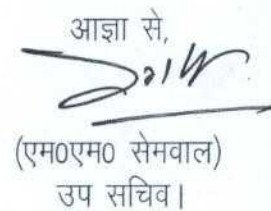 आज्ञा से,
(एम0एम0 सेमवाल)
उप सचिव।